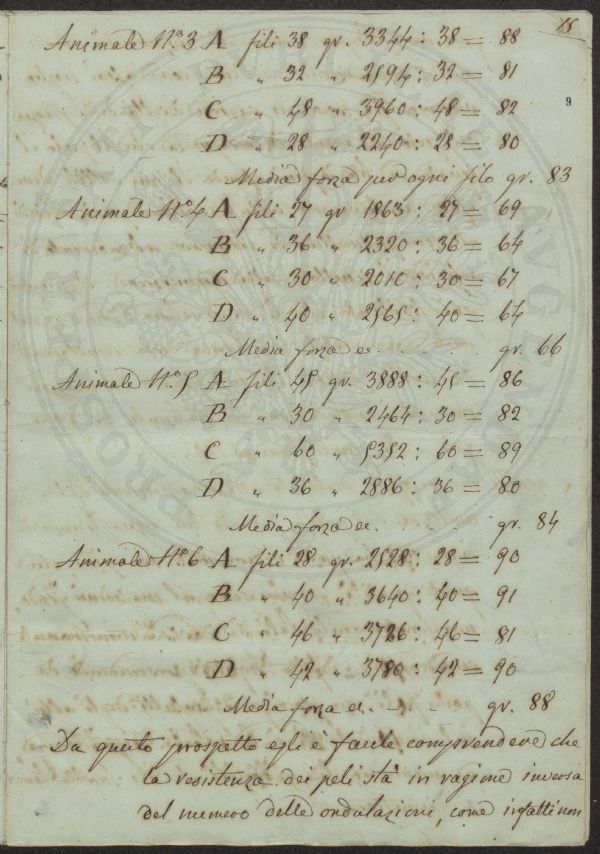 18
9
Animale N.º 3 A fili 38 gr. 3344 : 38 = 88
B " 32 " 2594 : 32 = 81
C " 48 " 3960 : 48 = 82
D " 28 " 2240 : 28 = 80
Media forza per ogni filo gr. 83
Animale N.º 4 A fili 27 gr 1863 : 27 = 69
B " 36 " 2320 : 36 = 64
C " 30 " 2010 : 30 = 67
D " 40 " 2565 : 40 = 64
Media forza ec. . . . gr. 66
Animale N.º 5 A fili 45 gr. 3888 : 45 = 86
B " 30 " 2464 : 30 = 82
C " 60 " 5352 : 60 = 89
D " 36 " 2886 : 36 = 80
Media forza ec. . . . gr. 84
Animale N.º 6 A fili 28 gr. 2528 : 28 = 90
B " 40 " 3640 : 40 = 91
C " 46 " 3726 : 46 = 81
D " 42 " 3780 : 42 = 90
Media forza ec. . . . gr. 88
Da questo prospetto egli è facile comprendere che
la resistenza dei peli stà in ragione inversa
del numero delle ondulazioni, come infatti non